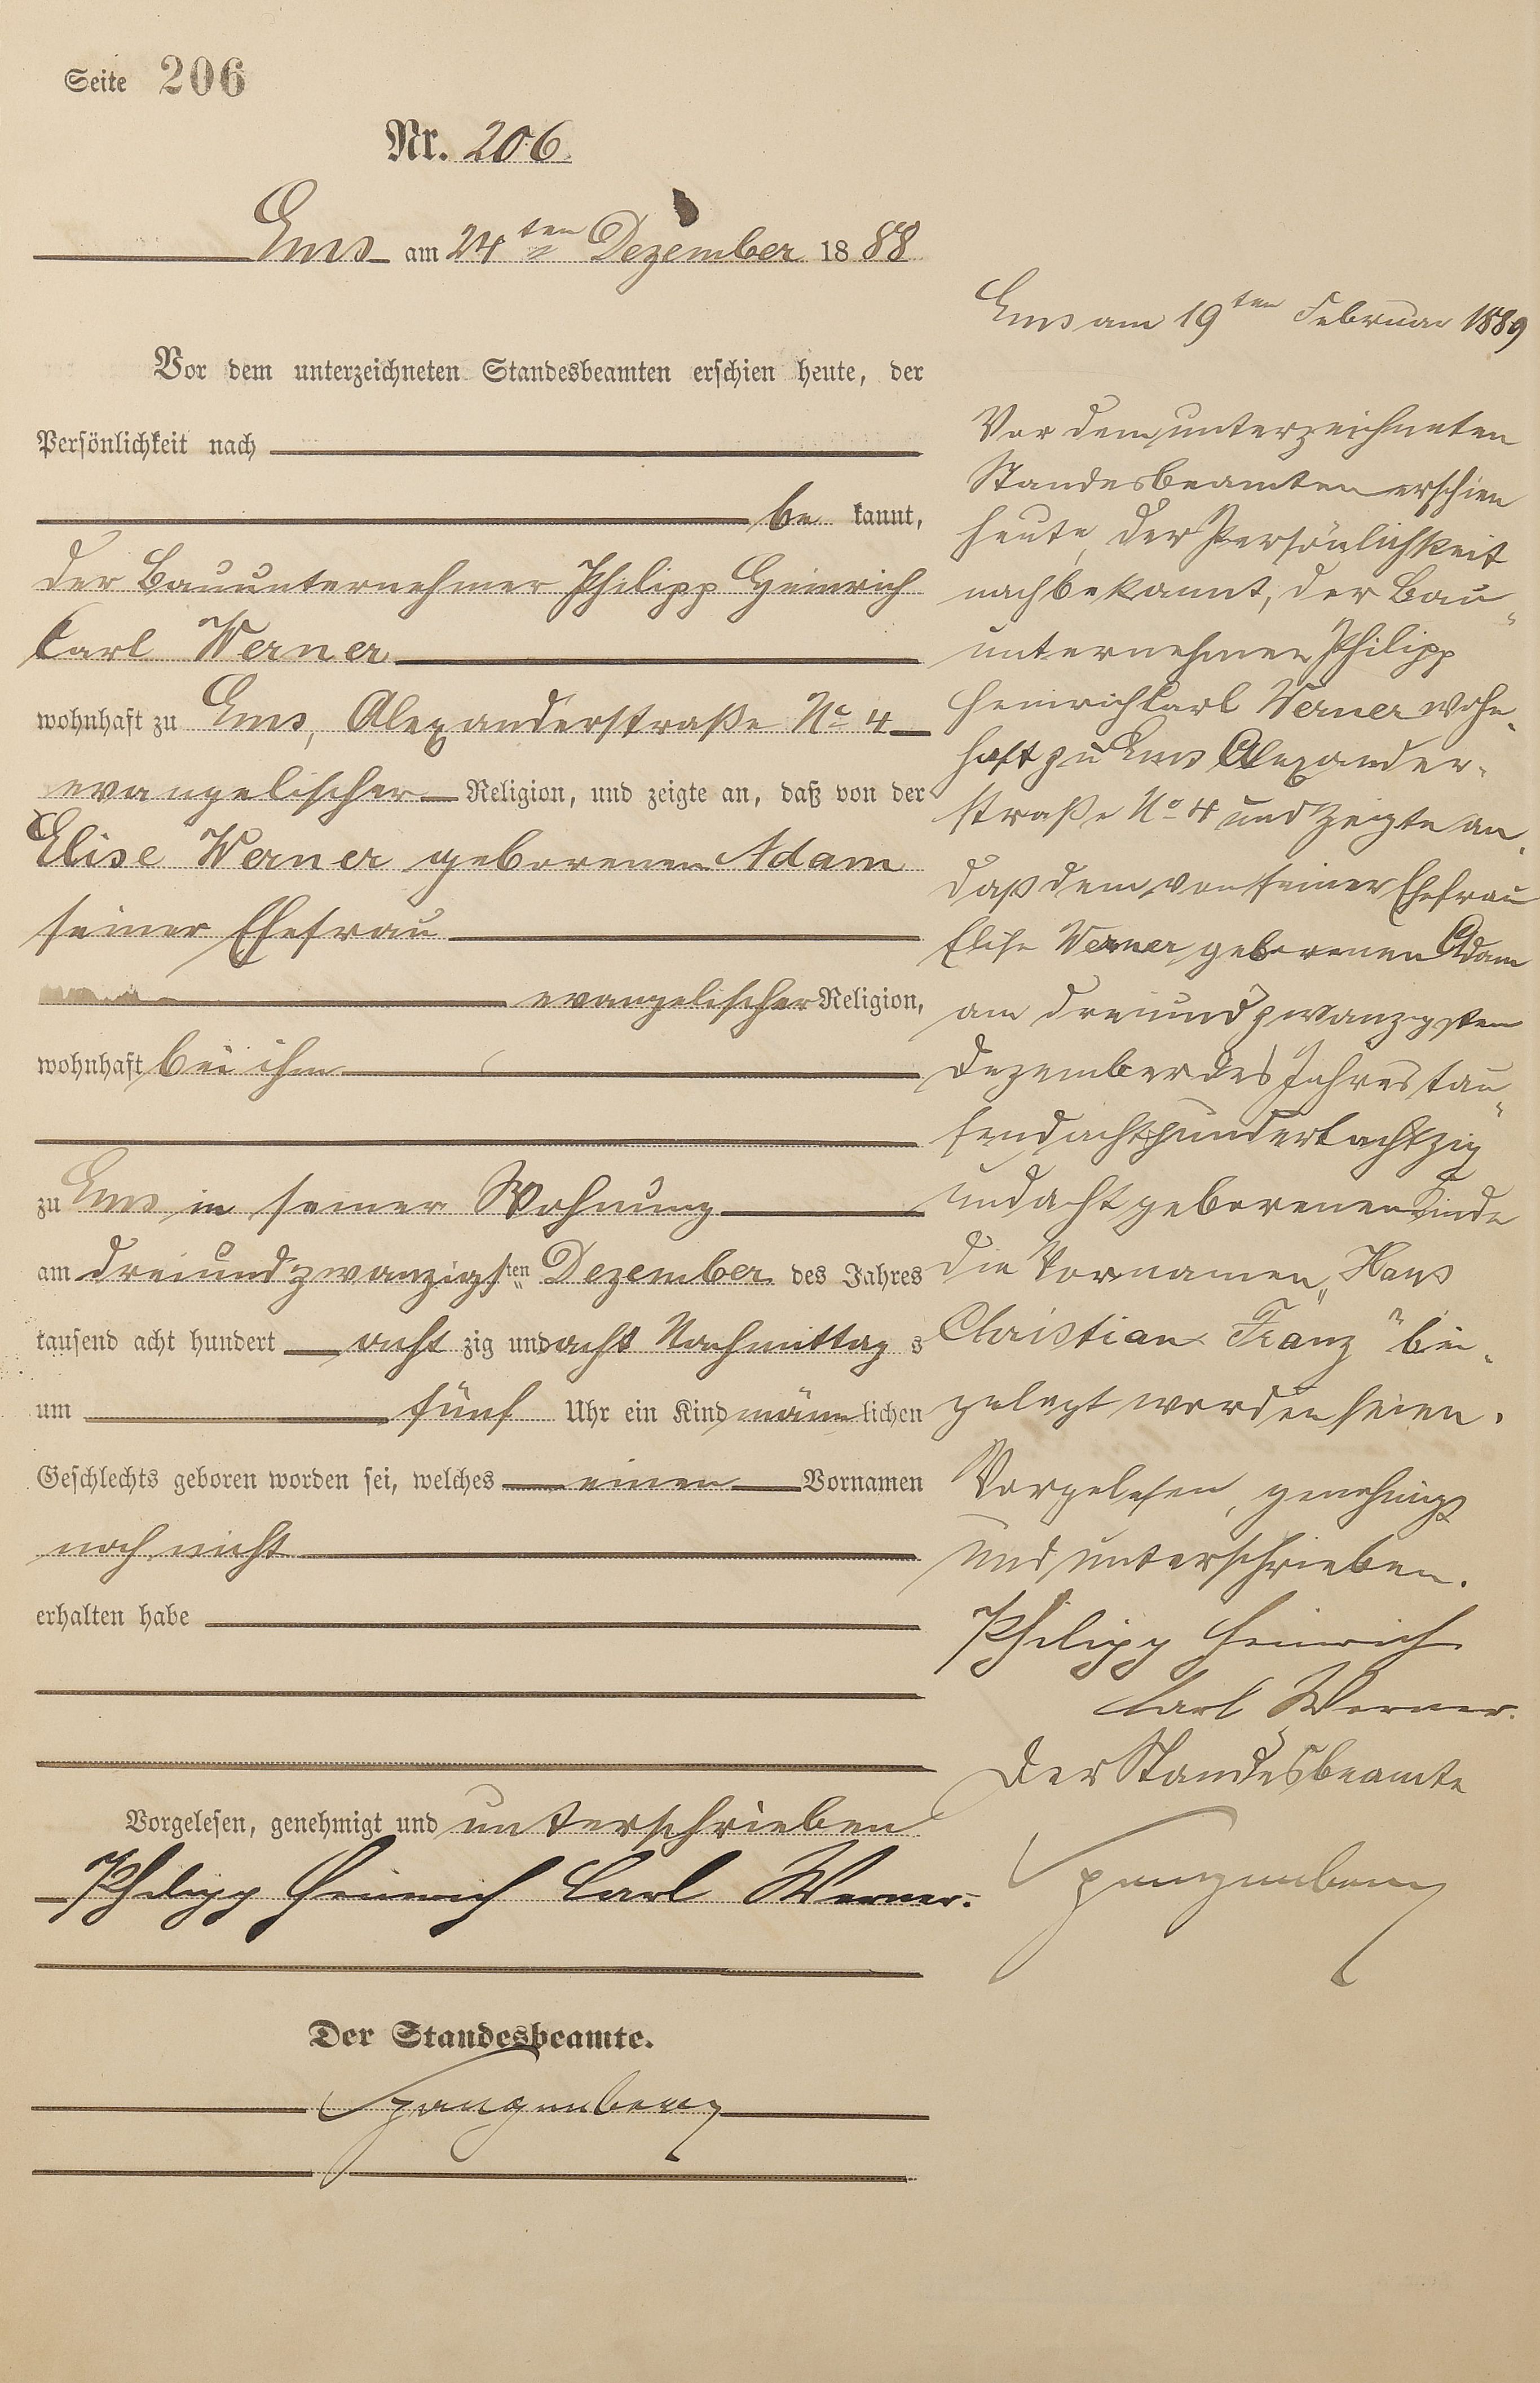 Seite 206
Nr. 206
Ems am 24ten Dezember 1888
Vor dem unterzeichneten Standesbeamten erschien heute, der
Persönlichkeit nach
be kannt,
der Bauunternehmer Philipp Heinrich
Carl Werner
wohnhaft zu Ems, Alexanderstraße No 4
evangelischer Religion, und zeigte an, daß von der
Elise Werner geborenen Adam
seiner Ehefrau
evangelischer Religion,
wohnhaft bei ihm
zu Ems in seiner Wohnung
am dreiundzwanzigsten Dezember des Jahres
tausend acht hundert acht zig und acht Nachmittag s
um fünf Uhr ein Kind männlichen
Geschlechts geboren worden sei, welches einen Vornamen
noch nicht
erhalten habe
Vorgelesen, genehmigt und unterschrieben
Philipp Heinrich Carl Werner.
Der Standesbeamte.
Spangenberg
Ems am 19ten Februar 1889
Vor dem unterzeichneten
Standesbeamten erschien
heute, der Persönlichkeit
nach bekannt, der Bau„
unternehmer Philipp
Heinrich Carl Werner wohn„
haft zu Ems Alexander„
straße No 4 und zeigte an,
daß dem von seiner Ehefrau
Elise Werner geborenen Adam
am dreiundzwanzigsten
Dezember des Jahres tau„
sendachthundertachtzig
undacht geborenen Kinde
die Vornamen „Hans
Christian Franz" bei„
gelegt worden seien.
Vorgelesen, genehmigt
und unterschrieben.
Philipp Heinrich
Carl Werner.
Der Standesbeamte
Spangenberg